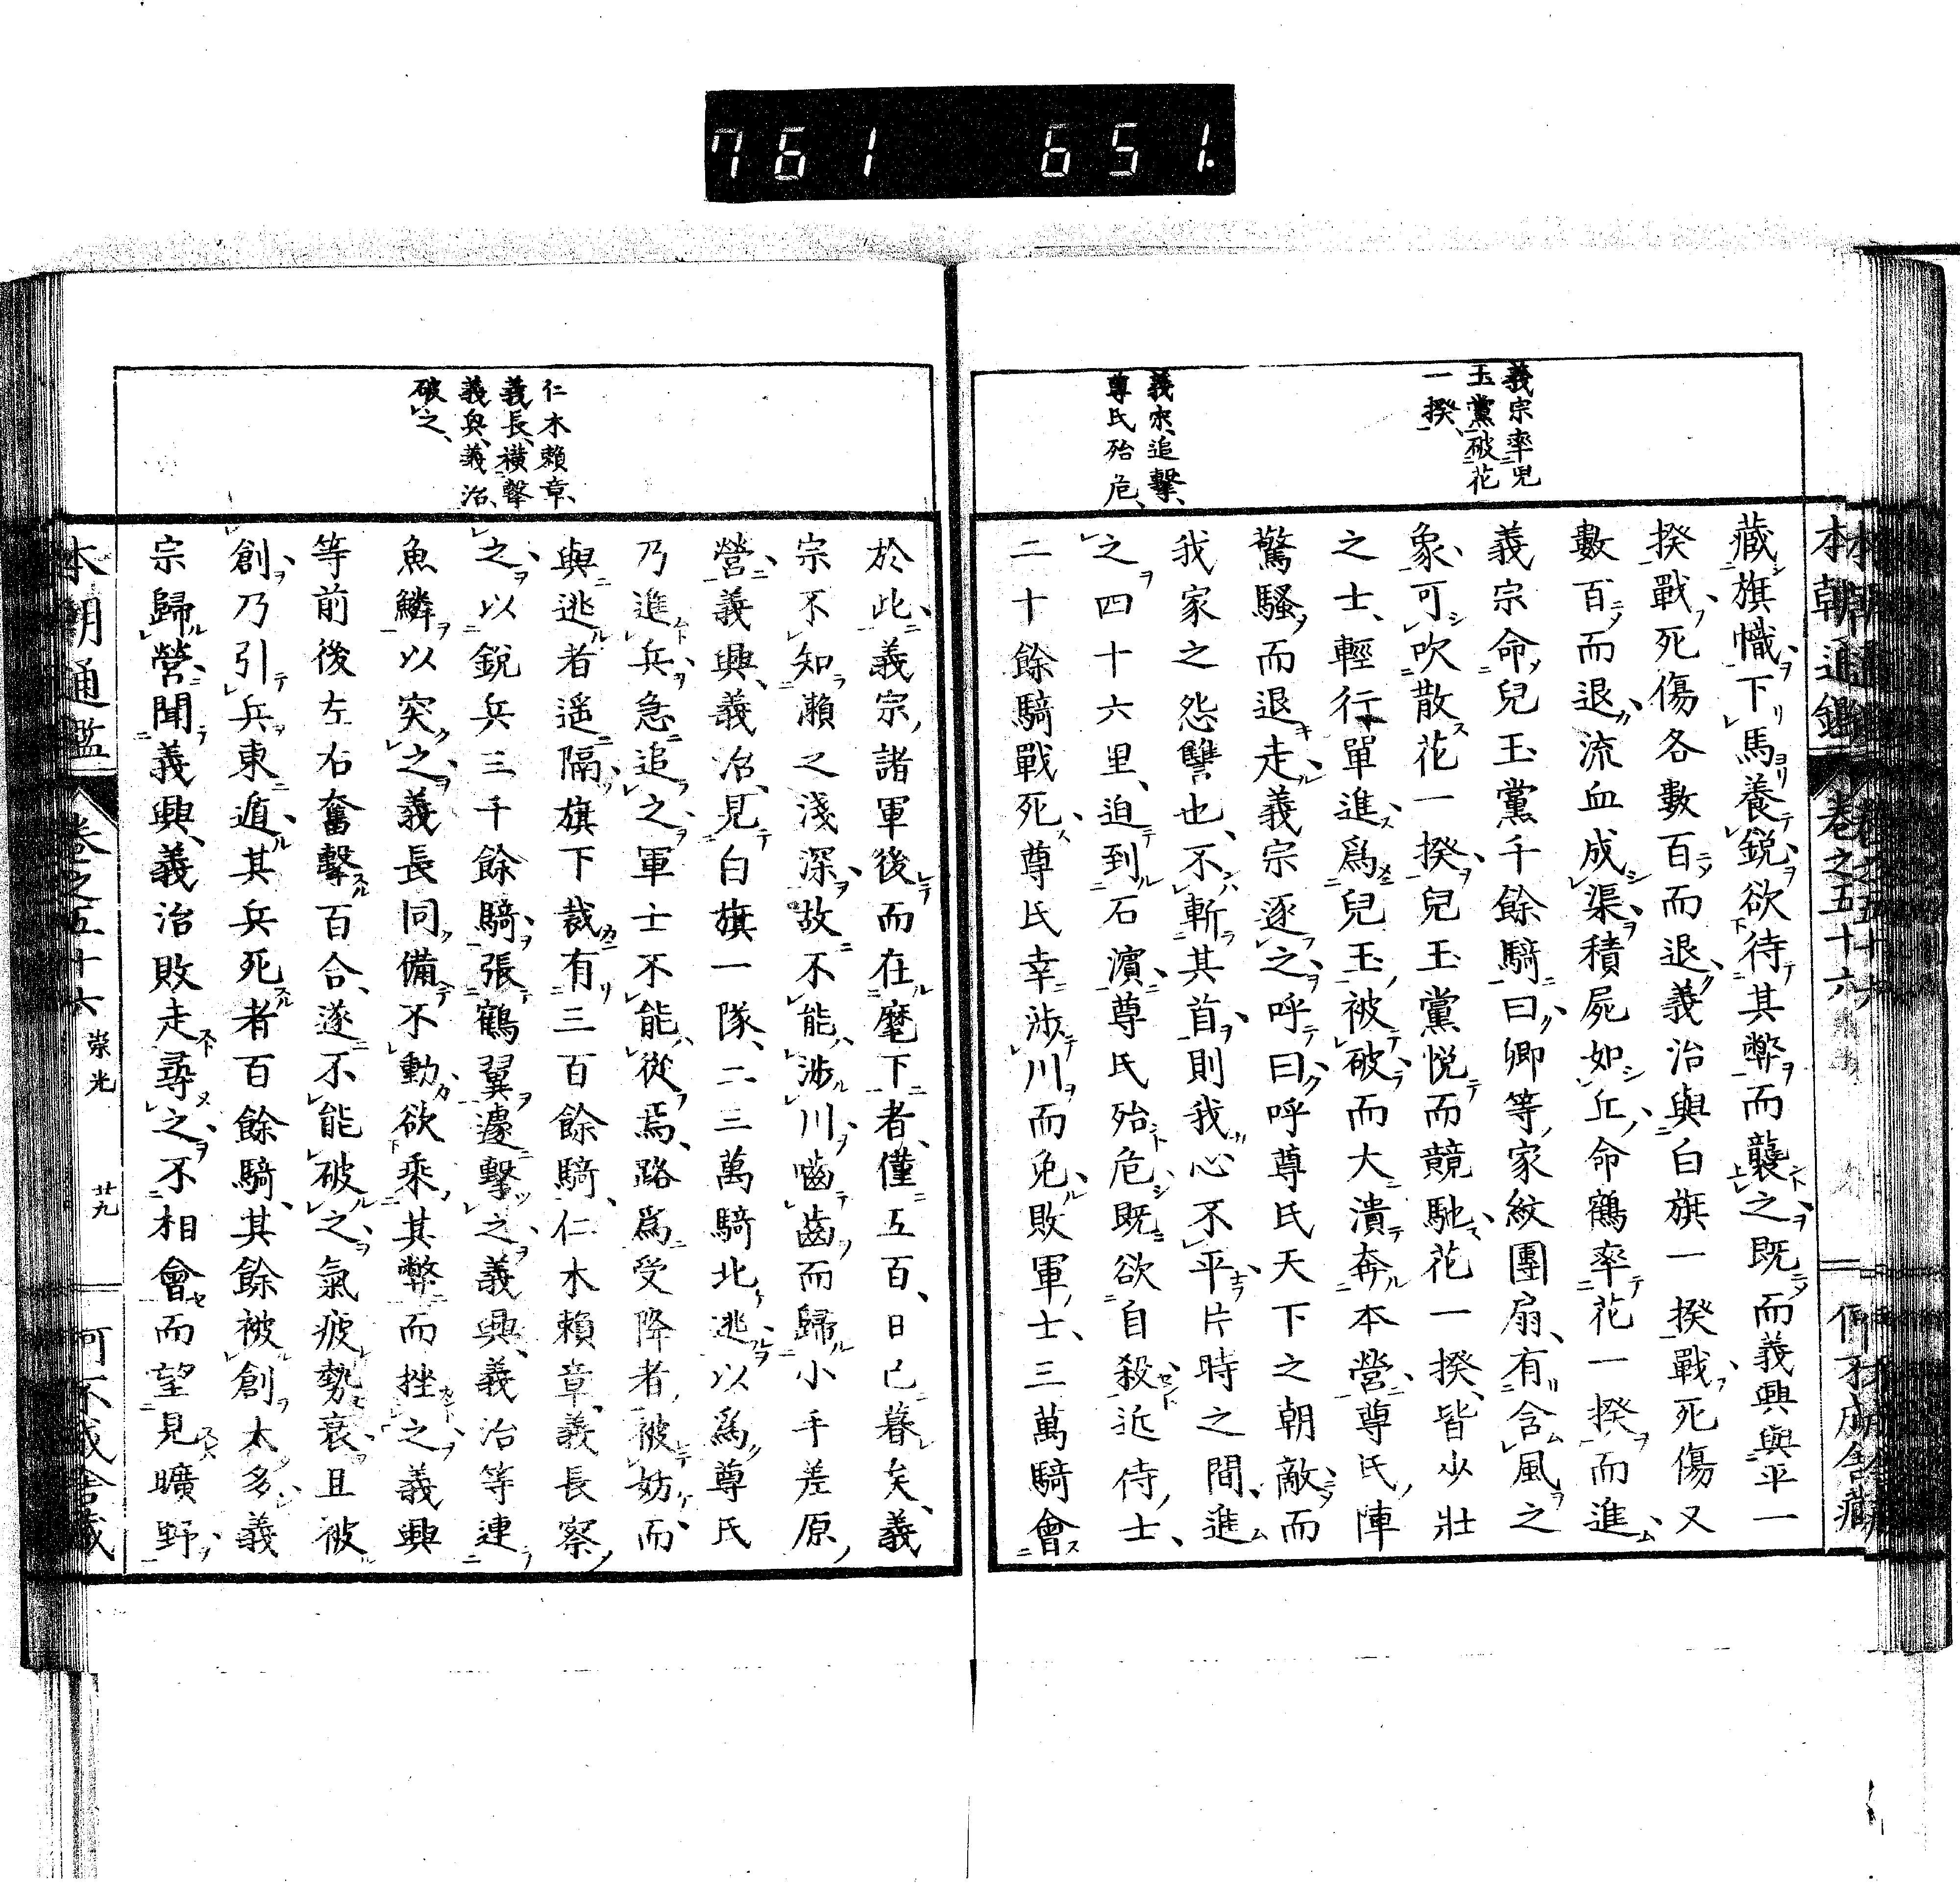 761 651.
本朝通鑑 卷之五十六
義宗率兒
玉黨破花
一揆
義宗追擊
尊氏殆危
藏旗幟下馬養鋭欲待其弊而襲之既而義興與平一
揆戰死傷各數百而退義治與白旗一揆戰死傷又
數百而退流血成渠積屍如丘命鶴率花一揆而進
義宗命兒玉黨千餘騎曰卿等家紋團扇有含風之
象可吹散花一揆兒玉黨悦而競馳花一揆皆少壯
之士輕行單進爲兒玉被破而大潰奔本營尊氏陣
驚騷而退走義宗逐之呼曰呼尊氏天下之朝敵而
我家之怨讐也不斬其首則我心不平片時之間進
之四十六里迫到石濵尊氏殆危既欲自殺近侍士
二十餘騎戰死尊氏幸涉川而免敗軍士三萬騎會
仁木賴章
義長横擊
義興義治
破之
於此義宗諸軍後而在麾下者僅五百日已暮矣義
宗不知瀬之淺深故不能涉川嚙齒而歸小手差原
營義興義治見白旗一隊二三萬騎北逃以爲尊氏
乃進兵急追之軍士不能從焉路爲受降者被妨而
與逃者遥隔旗下裁有三百餘騎仁木賴章義長察
之以鋭兵三千餘騎張鶴翼遽擊之義興義治等連
魚鱗以突之義長同備不動欲乘其弊而挫之義興
等前後左右奮擊百合遂不能破之氣疲勢衰且被
創乃引兵東遁其兵死者百餘騎其餘被創太多義
宗歸營聞義興義治敗走尋之不相會而望見曠野
本朝通鑑 卷之五十六 崇光 廿九